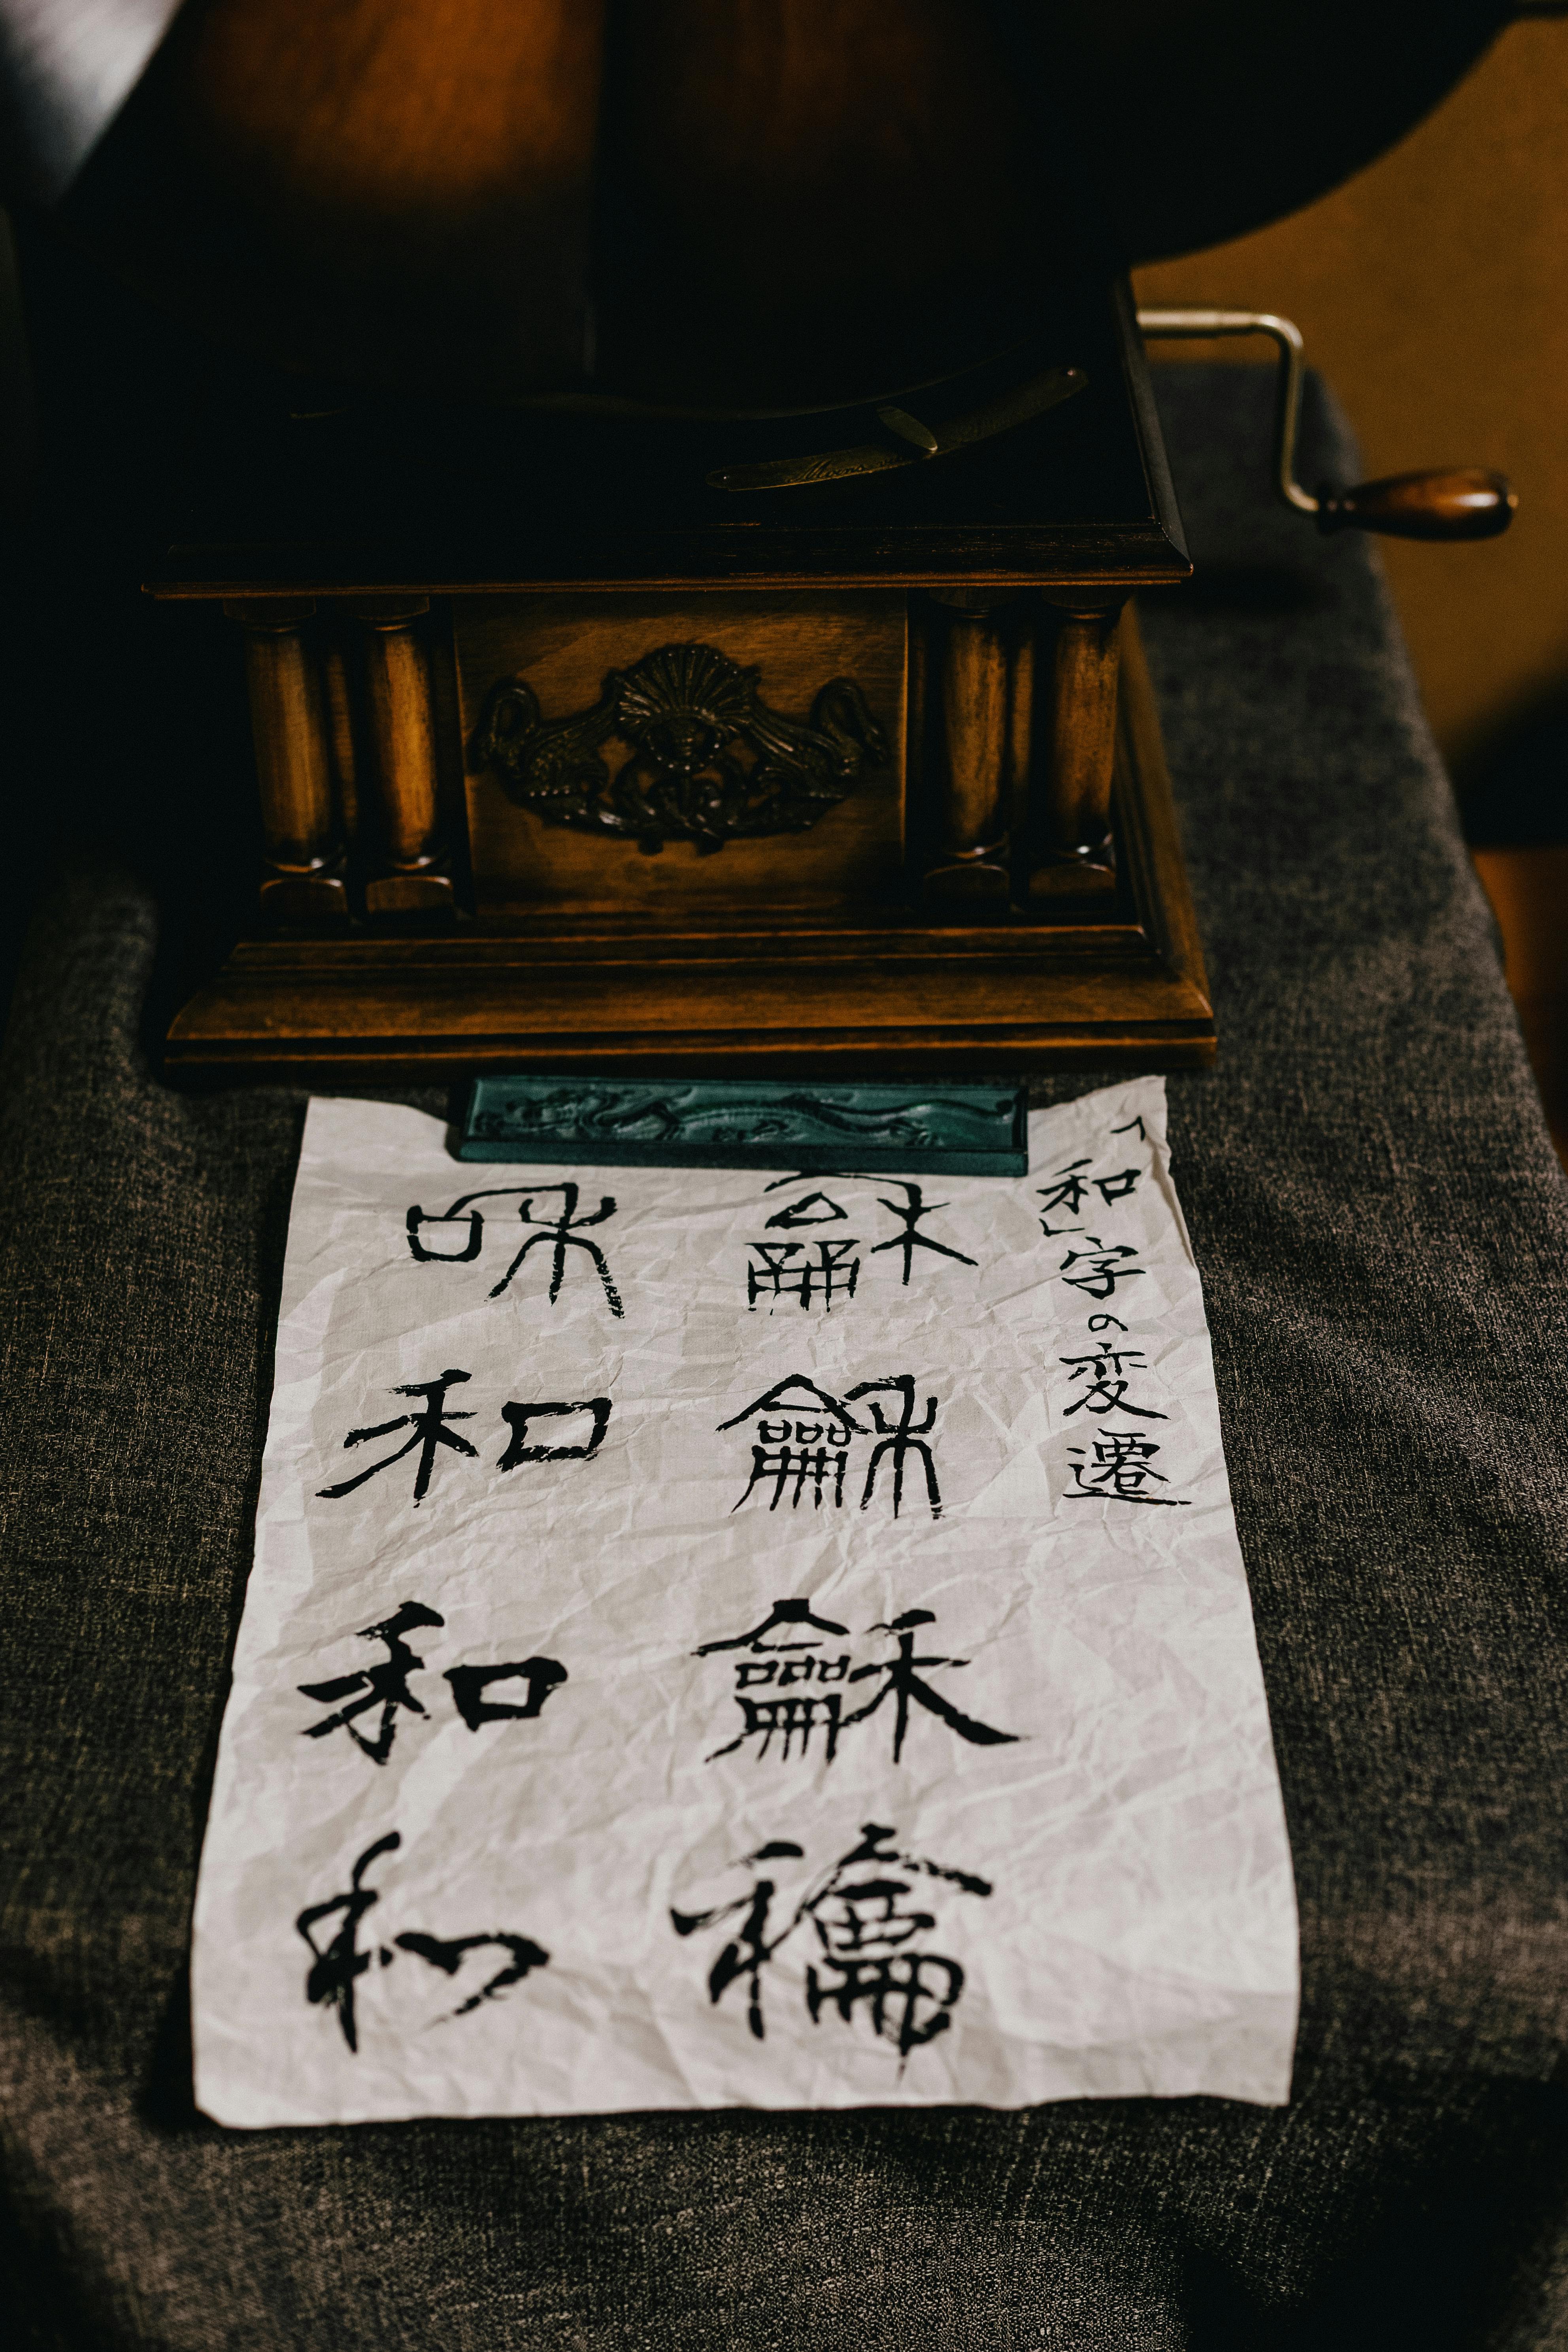 「和」字の変遷
龢
龢
龢
龢
和
和
和
和